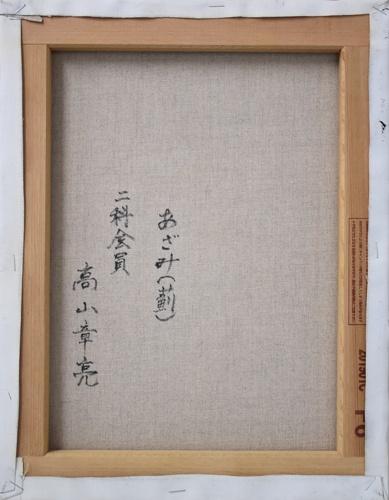 あざみ(薊)
二科会員
高山章亮
201501C
F6